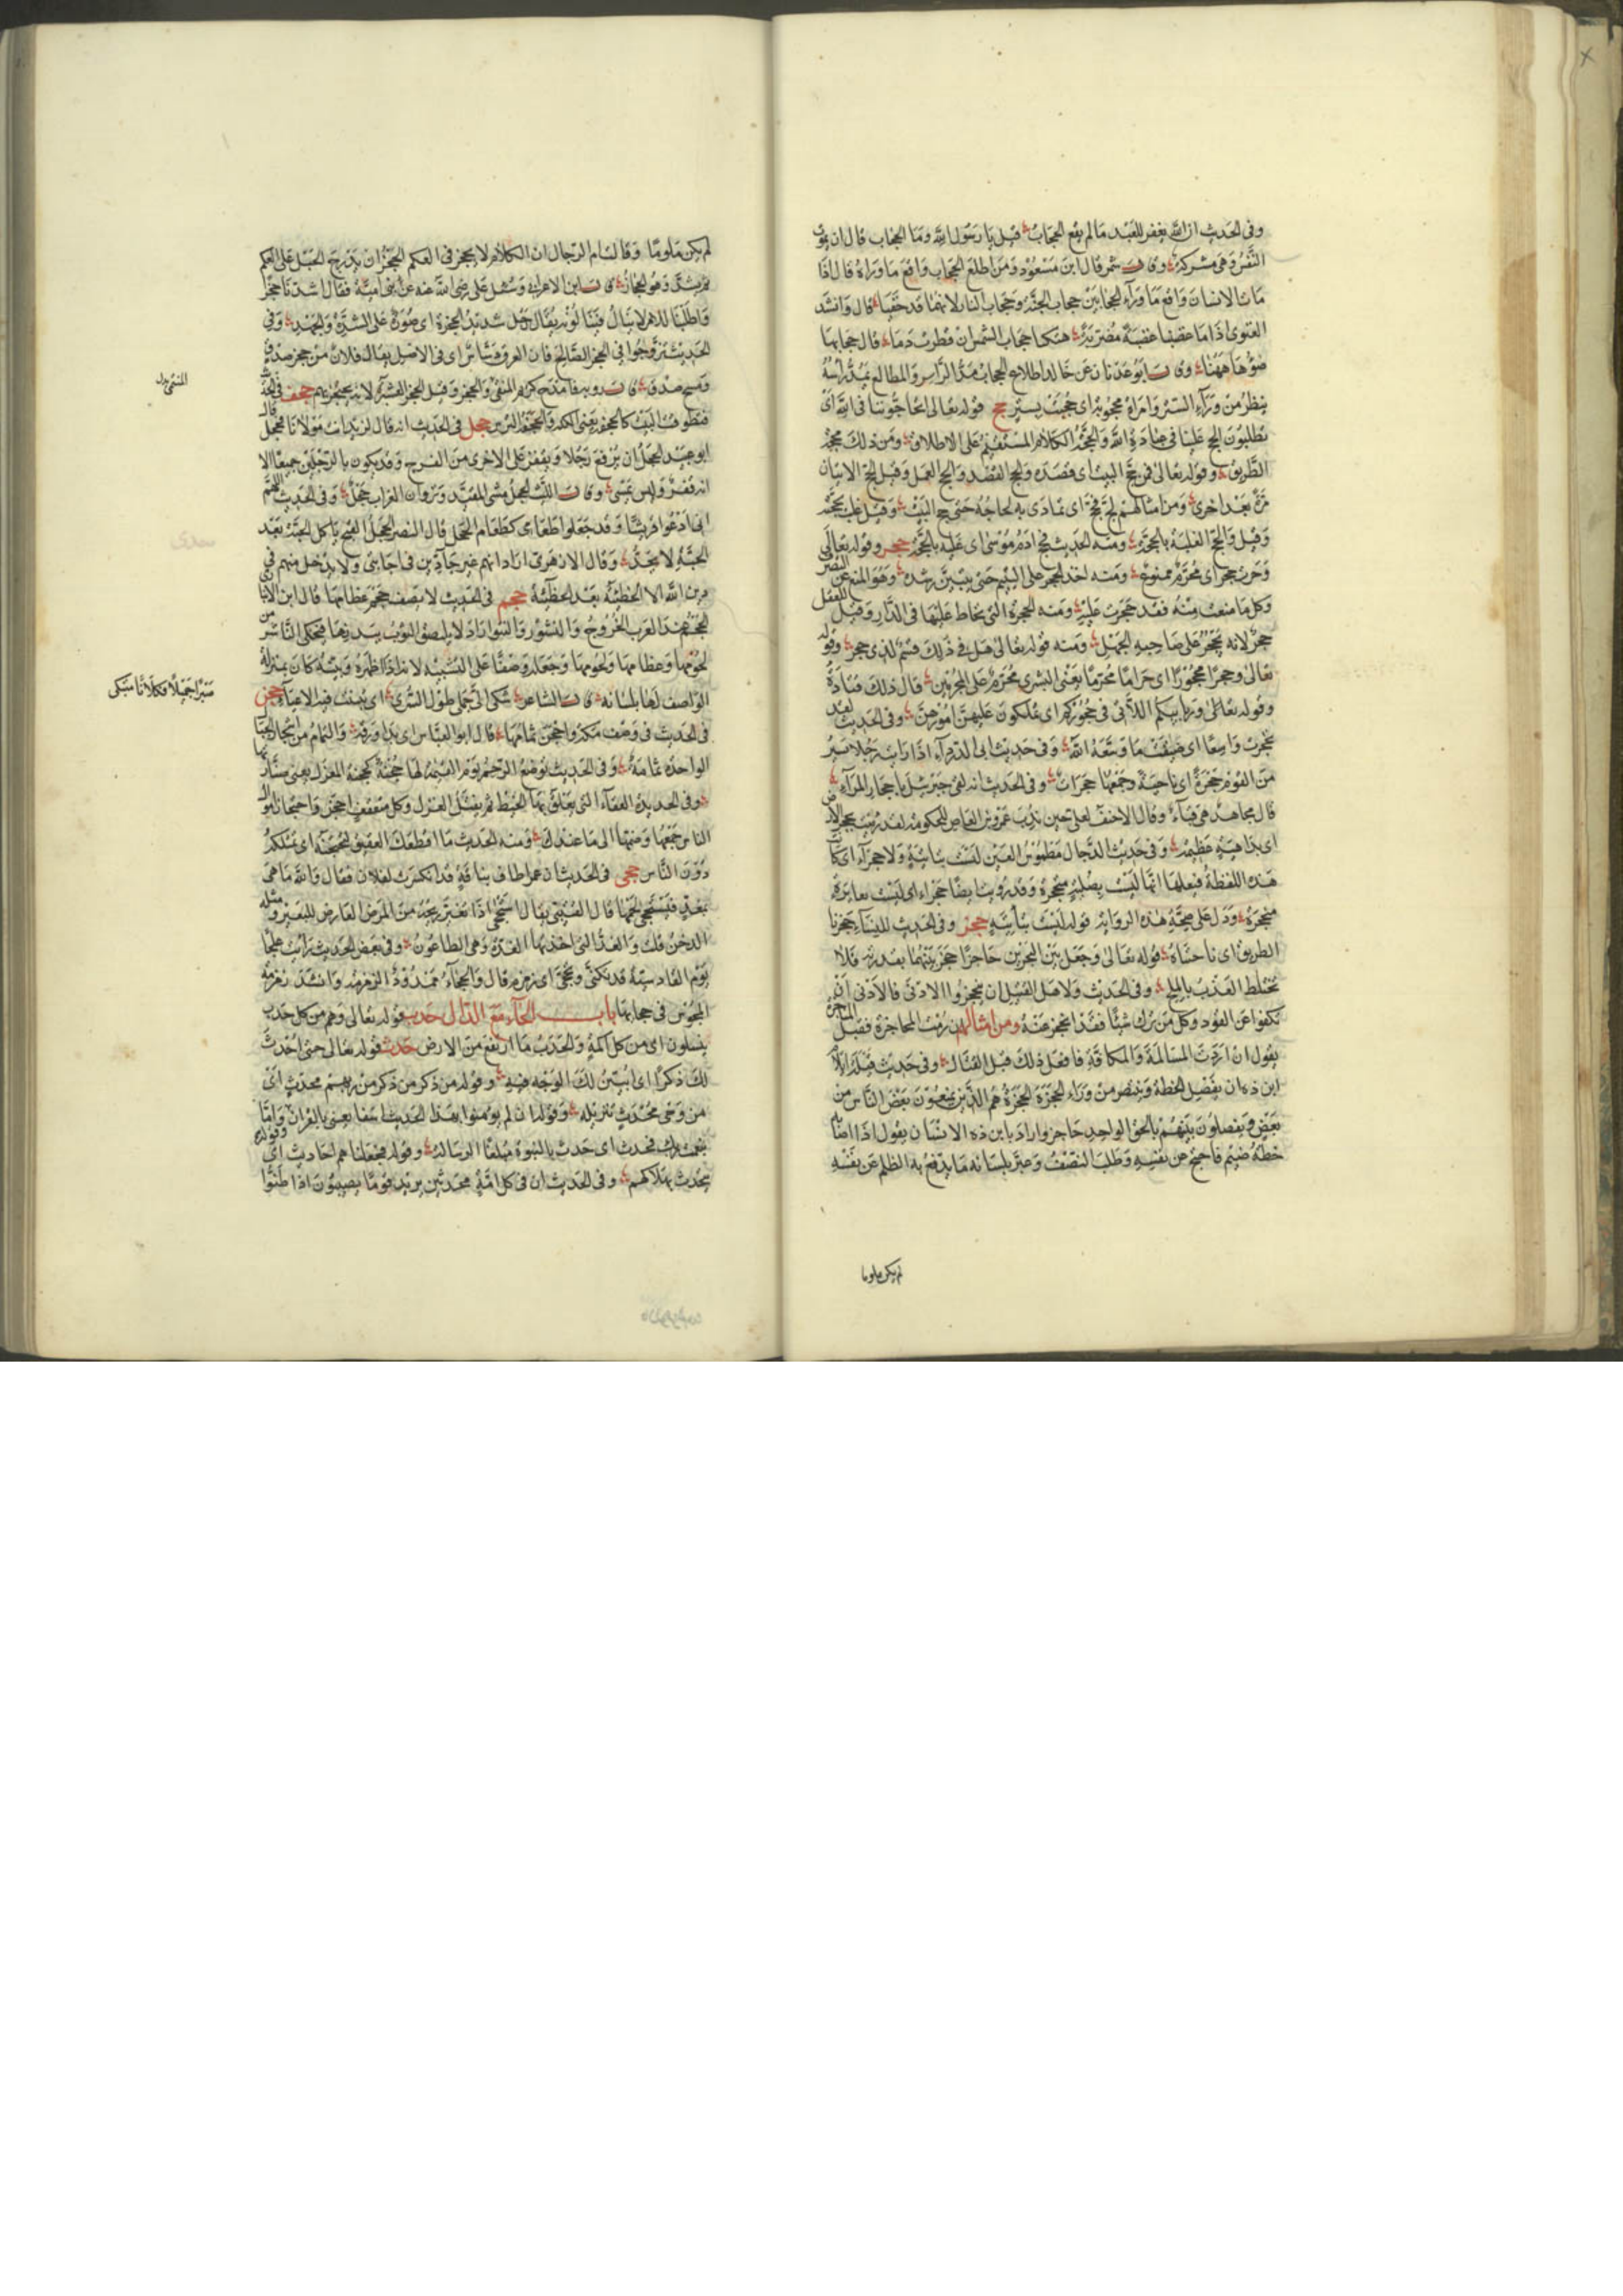 وفى الحديث ان الله يغفر للعبد مالم يقع الحجاب قيل يا رسول الله وما الحجاب قال ان تموت
النفس وهى مشركة وقال شمر قال ابن مسعود ومن اطلع الحجاب واقع ما وراه قال اذا
مات الانسان واقع ما وراء الحجابين حجاب الجنة وحجاب النار لانهما قد خفيا قال وانشد
الغنوى اذا ما غضبنا غضبة مضرية هتكنا حجاب الشمس ان قطرت دما قال حجابها
ضوها ههنا وقال ابو عدنان عن خالد اطلاح الحجاب مد الراس والمطالع يمد راسه
ينظر من وراء الستر وامراة محجوبة اى حجبت بستر حج قوله تعالى اتحاجوننا فى الله اى
تطلبون الحج علينا فى الله والحجة الكلام المستقيم على الاطلاق ومن ذلك محجة
الطريق وقوله تعالى فمن حج البيت اى قصده والحج القصد والحج العمل وقيل الحج الاتيان
مرة بعد اخرى ومن امثالهم لج فحج اى تمادى به لجاجه حتى حج البيت وقيل غلب بحجته
وقيل والحج الغلبة بالحجة ومنه الحديث فحج ادم موسى اى غلبه بالحجة حجر وقوله تعالى
وحرث حجر اى محرم ممنوع ومنه اخذ الحجر على اليتيم حتى يتبين رشده وهو المنع عن التصرف
وكل ما منعت منه فقد حجرت عليه ومنه الحجرة التى يحاط عليها فى الدار وقيل للعقل
حجر لانه يحجر على صاحبه الجهل ومنه قوله تعالى هل فى ذلك قسم لذى حجر وقوله
تعالى وحجرا محجورا اى حراما محرما يعنى البشرى محرم على المجرمين قال ذلك قتادة
وقوله تعالى وربايبكم اللاتى فى حجوركم اى تملكون عليهن امورهن وفى الحديث لقد
تحجرت واسعا اى ضيقت ما وسعه الله وفى حديث ابى الدرداء اذا رايت رجلا يسير
من القوم حجرة اى ناحية وجمعها حجرات وفى الحديث انه لقى جبرئيل باحجار المراء
قال مجاهد هى قباء وقال الاحنف لعلى حين ندب عمرو بن العاص للحكومة لقد رميت بحجر الارض
اى بداهية عظيمة وفى حديث الدجال مطموس العين ليست بناتية ولا حجراء ان كانت
هذه اللفظة فمعناها انها ليست بصلبة متحجرة وقد رويت ايضا جخراء اى ليست بغايرة
منجحرة ودل على صحة هذه الرواية قوله ليست بناتية حجز وفى الحديث
الطريق اى ناحيتاه قوله تعالى وجعل بين البحرين حاجزا حجز بينهما بقدرته فلا
يختلط العذب بالملح وفى الحديث ولاهل القتيل ان ينحجزوا الادنى فالادنى ان
يكفوا عن القود وكل من ترك شيئا فقد انحجز عنه ومن امثالهم ان رمت المحاجزة فقبل المناجزة
يقول ان اردت المسالمة والمكافة فافعل ذلك قبل القتال وفى حديث قيلة ايلام
ابن ذه ان يفصل الخطة وينتصر من وراء الحجزة الحجزة هم الذين يمنعون بعض الناس من
بعض ويفصلون بينهم بالحق الواحد حاجز واراد بابن ذه الانسان يقول اذا اصابه
خطة ضيم فاحتج عن نفسه وطلب النصف وعبر بلسانه ما يدفع به الظلم عن نفسه
لم يكن ملوما
لم يكن ملوما وقالت ام الرجال ان الكلام لا يحجز فى العكم الحجز ان يدرج الحبل على العكم
ثم يشد وهو الحجاز قال ابن الاعرابى وسئل على رضى الله عنه عن بنى امية فقال اشدنا حجزا
واطلبنا للامر لا ينال فينالونه يقال رجل شديد الحجزة اى صبور على الشدة والجهد وفى
الحديث تزوجوا فى الحجز الصالح فان العرق دساس اى فى الاصل يقال فلان من حجز صدق
وقال رؤبة فامدح كريم المنتمى والحجز وقيل الحجز العشيرة لانه يحتجز بهم حجف فى الحديث
فتطوقت بالبيت كالحجفة يعنى الكعبة والحجفة الترس حجل فى الحديث انه قال لزيد انت مولانا فحجل
ابو عبيد الحجل ان يرفع رجلا ويقفز على الاخرى من الفرح وقد يكون بالرجلين جميعا الا
انه قفز وليس بمشى وقال الليث الحجل مشى المقيد ونزوان الغراب حجل وفى الحديث اللهم
انى ادعوا قريشا وقد جعلوا طعامى كطعام الحجل قال النضر الحجل القبج ياكل الحبة بعد
الحبة لا يجد وقال الازهرى اراد انهم غير جادين فى اجابتى ولا يدخل منهم فى
دين الله الا الخطيئة بعد الخطيئة حجم فى الحديث لا يصف حجم عظامها قال ابن الانبارى
الحجم عند العرب الخروج والنشوز والنتو اراد لا يلتصق الثوب ببدنها فيحكى الناشز من
لحومها وعظامها ولحومها وجعله وصفا على التشبيه لانه اذا اظهره وبينه كان بمنزلة
الواصف لها بلسانه قال الشاعر شكى الى جملى طول السرى اى حجن
فى الحديث فى وصف مكة واحجن ثمامها قال ابو العباس اى بدا ورقه والثمام
الواحدة ثمامة وفى الحديث توضع الرحم يوم القيمة لها حجنة كحجنة المغزل يعنى صنارته
وفى الحديدة العقفاء التى يعلق بها الخيط ثم يفتل الغزل وكل متعقف احجن واحتجان اموال
الناس جمعها وضمها الى ما عندك ومنه الحديث ما اقطعك العقيق لتحتجنه اى تتملكه
دون الناس حجى فى الحديث ان عمر طاف بناقة قد انكسرت لفلان فقال والله ما هى
بمغد فيستحجى لحمها قال القتيبى يقال استحجى اذا تغير ريحه من المرض العارض للبعير ومثله
الدخن قلت والغدة التى اخذتها الغدة وهى الطاعون وفى بعض الحديث رايت علجا
يوم القادسية قد تكنى وتحجى اى زمزم قال والحجاء ممدود الزمزمة وانشد زمزمة
المجوس فى حجائها باب الحاء مع الدال حدب قوله تعالى وهم من كل حدب
ينسلون اى من كل اكمة والحدب ما ارتفع من الارض حدث قوله تعالى حتى احدث
لك ذكرا اى ابين لك الوجه فيه وقوله من ذكر من ربهم محدث اى
من وحى محدث تنزيله وقوله ان لم يومنوا بهذا الحديث اسفا يعنى بالقران واما
بنعمة ربك فحدث اى حدث بالنبوة مبلغا الرسالة وقوله فجعلناهم احاديث اى
يتحدث بهلاكهم وفى الحديث ان فى كل امة محدثين يريد قوما يصيبون اذا ظنوا
المنتمى بدل
صبرا جميلا فكلانا مبتلى